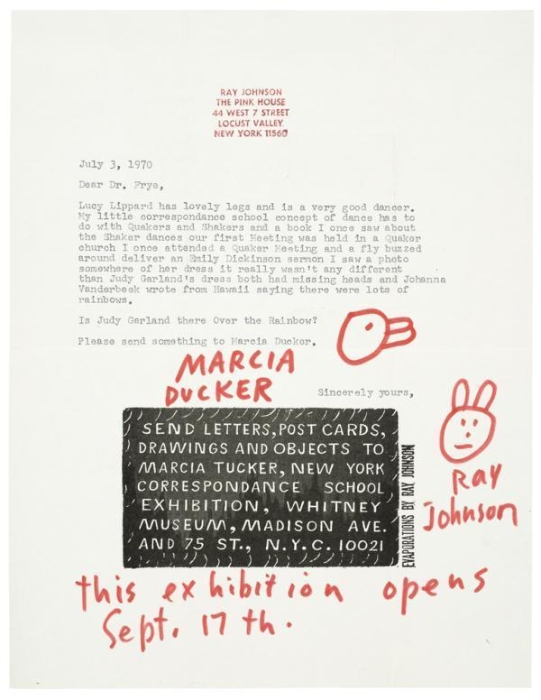 RAY JOHNSON
THE PINK HOUSE
44 WEST 7 STREET
LOCUST VALLEY
NEW YORK 11560
July 3, 1970
Dear Dr. Frye,
Lucy Lippard has lovely legs and is a very good dancer.
My little correspondance school concept of dance has to
do with Quakers and Shakers and a book I once saw about
the Shaker dances our first Meeting was held in a Quaker
church I once attended a Quaker Meeting and a fly buzzed
around deliver an Emily Dickinson sermon I saw a photo
somewhere of her dress it really wasn't any different
than Judy Garland's dress both had missing heads and Johanna
Vanderbeek wrote from Hawaii saying there were lots of
rainbows.
Is Judy Garland there Over the Rainbow?
Please send something to Marcia Ducker.
MARCIA
DUCKER
Sincerely yours,
SEND LETTERS, POST CARDS,
DRAWINGS AND OBJECTS TO
MARCIA TUCKER, NEW YORK
CORRESPONDANCE SCHOOL
EXHIBITION, WHITNEY
MUSEUM, MADISON AVE.
AND 75 ST., N.Y.C. 10021
EVAPORATIONS BY RAY JOHNSON
Ray
Johnson
this exhibition opens
Sept. 17 th.